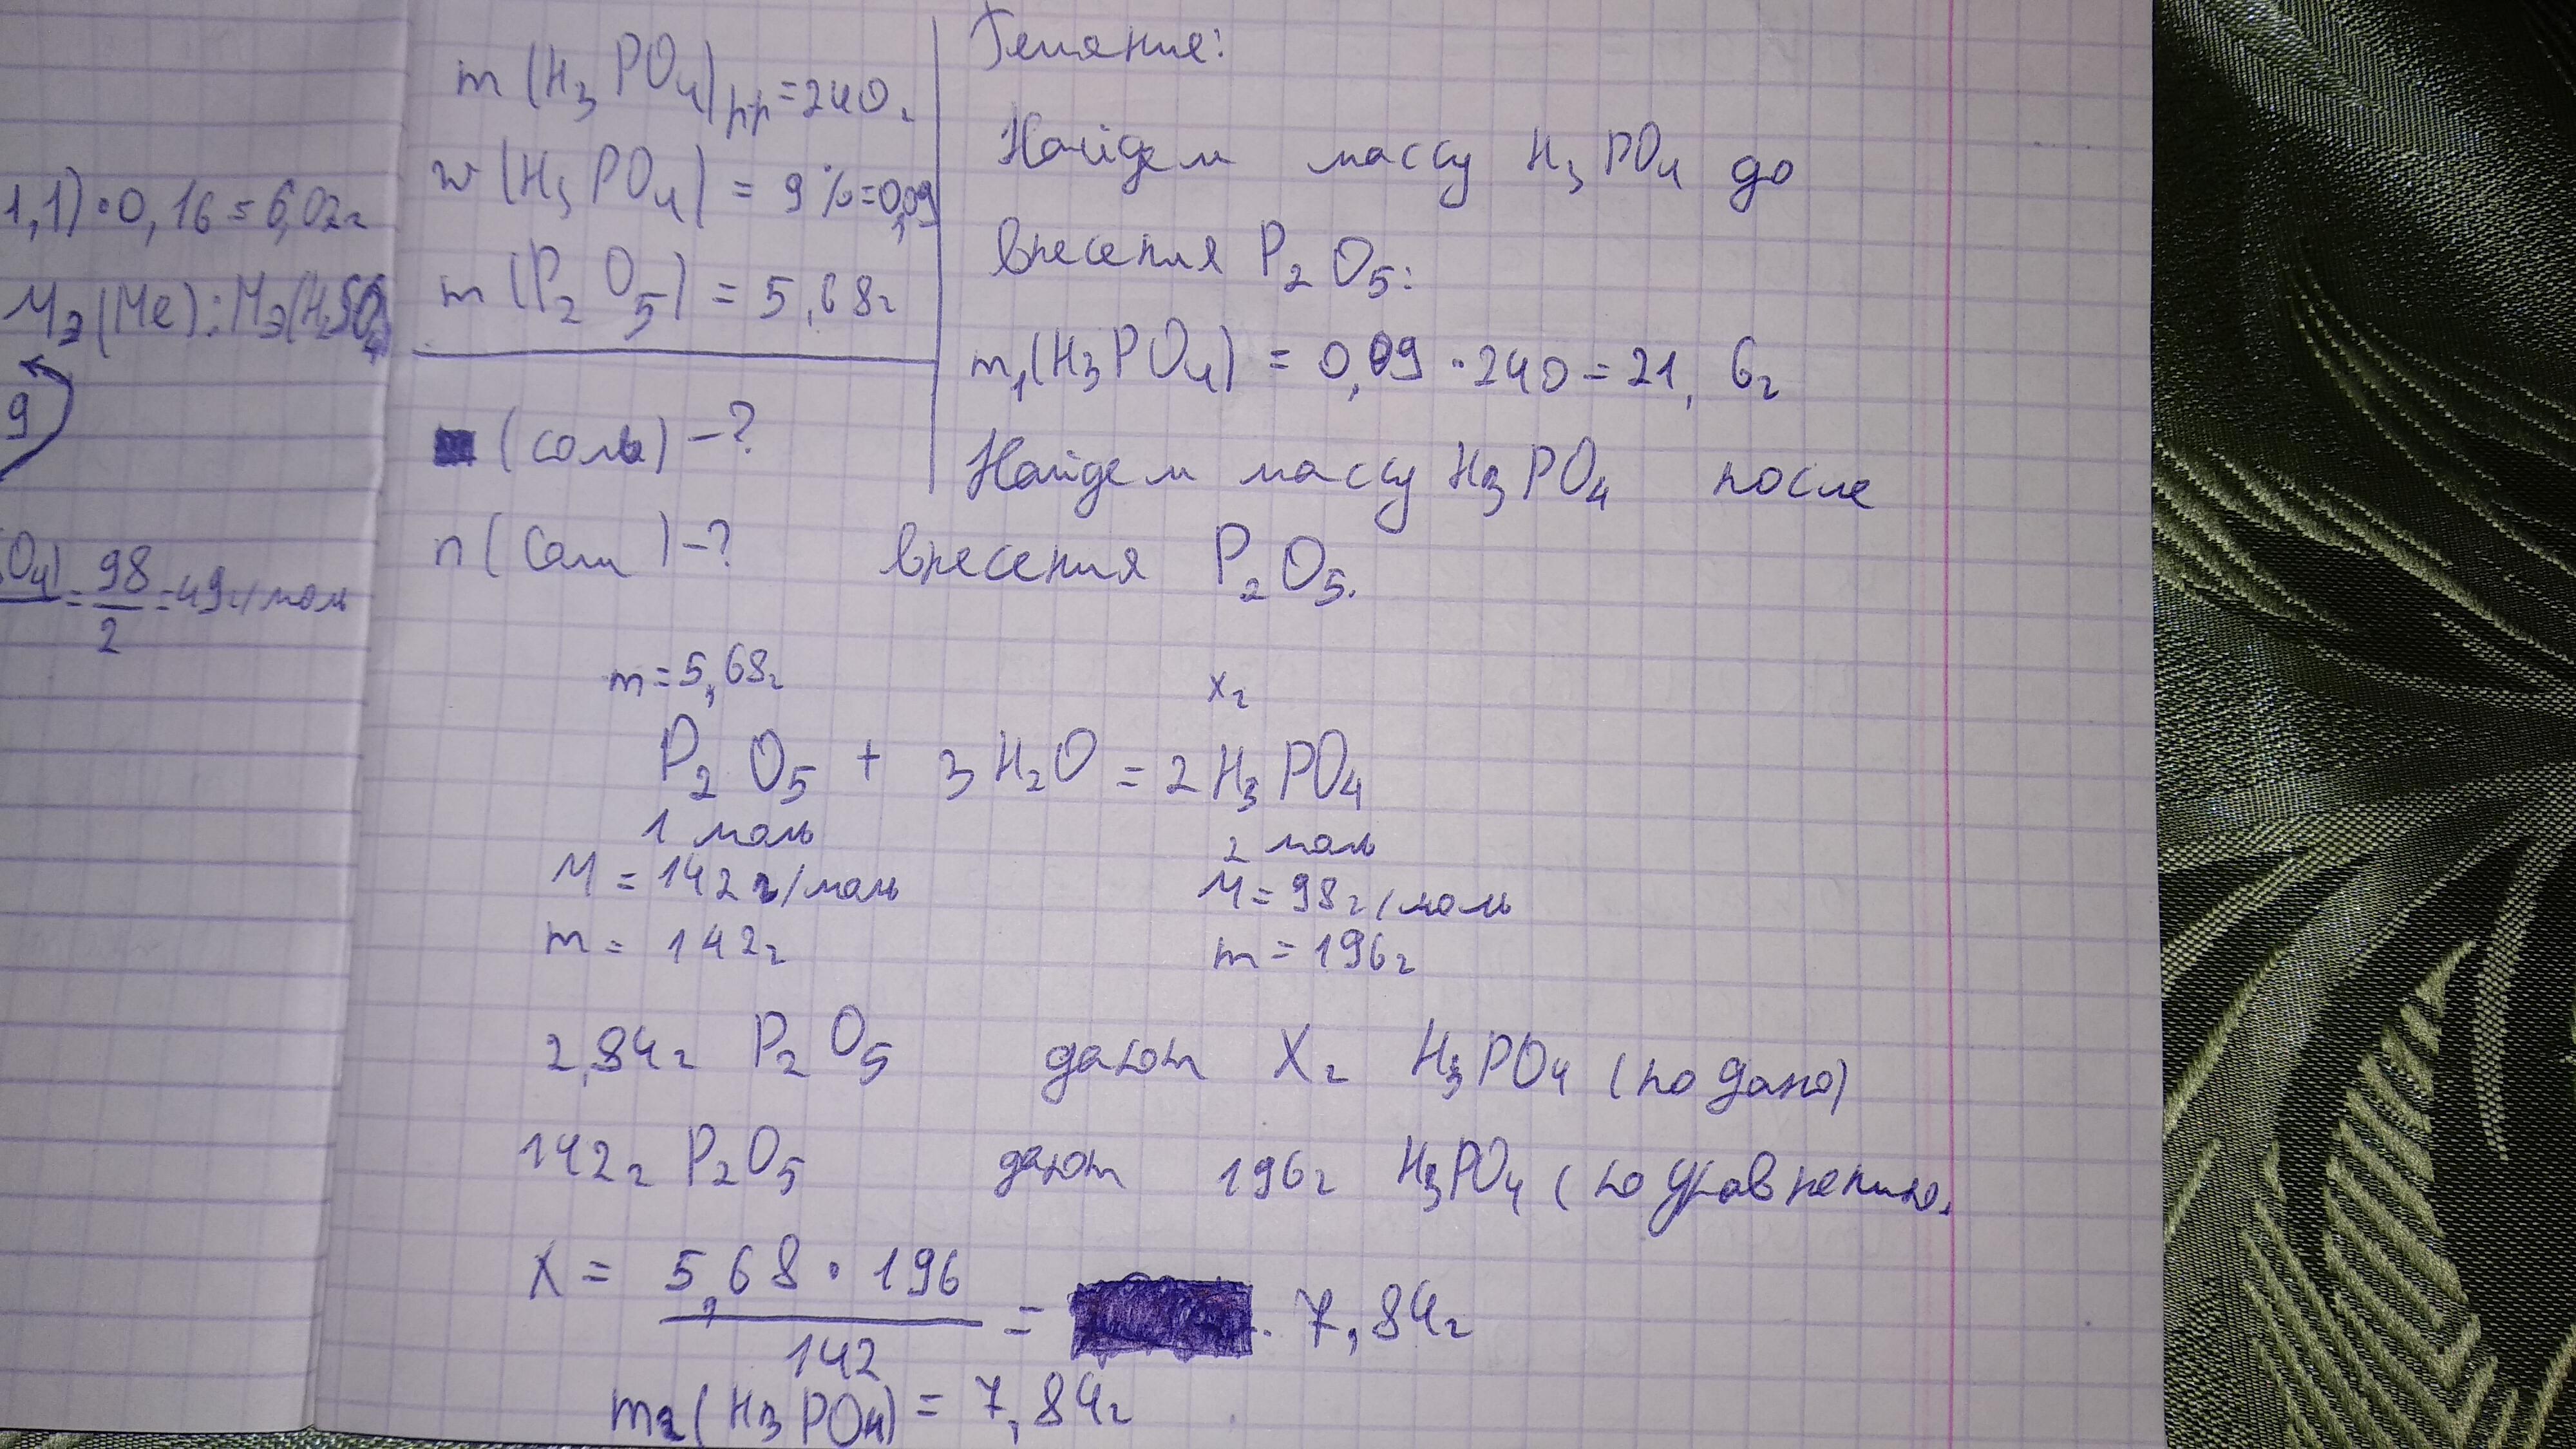 1,1)·0,16=6,02г
Мэ(Ме):Мэ(H2SO4
9
O4)=98/2=49г/моль
m(H3PO4)рр=240г
w(H3PO4)=9%=0,09
m(P2O5)=5,68г
(соль)-?
n(соли)-?
Решение:
Найдем массу H3PO4 до
внесения P2O5:
m1(H3PO4)=0,09·240=21,6г
Найдем массу H3PO4 после
внесения P2O5.
m=5,68г xг
P2O5+3H2O=2H3PO4
1 моль 2 моль
M=142г/моль M=98г/моль
m=142г m=196г
2,84г P2O5 дают Xг H3PO4 (по дано)
142г P2O5 дают 196г H3PO4 (по уравнению.
X=5,68·196/142=7,84г
m2(H3PO4)=7,84г